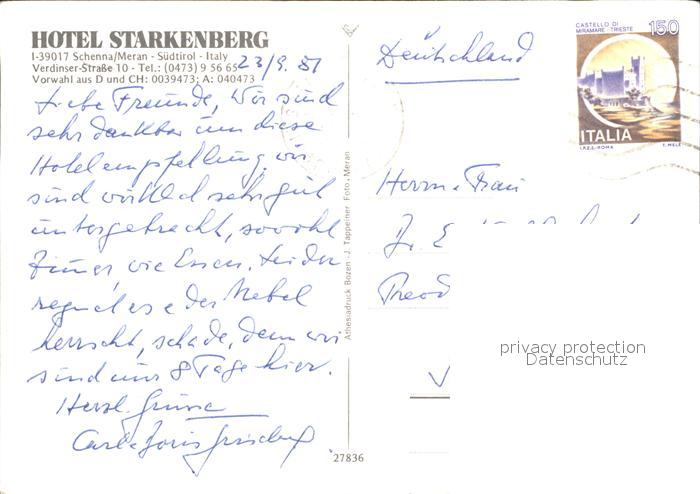 HOTEL STARKENBERG
I-39017 Schenna/Meran - Südtirol - Italy
Verdinser-Straße 10 - Tel.: (0473) 9 56 65
Vorwahl aus D und CH: 0039473; A: 040473
23/9. 81
Liebe Freunde, Wir sind
sehr dankbar um diese
Hotelempfehlung, wir
sind wirklich sehr gut
untergebracht, sowohl
Zimmer wie Essen. Leider
regnet es oder Nebel
herrscht, schade, denn wir
sind nur 8 Tage hier.
Herzl. Grüsse
Athesiadruck Bozen - J. Tappeiner Foto - Meran
27836
Deutschland
CASTELLO DI
MIRAMARE - TRIESTE
150
ITALIA
I.P.Z.S. - ROMA
Herrn + Frau
Dr. E
Theod
V
privacy protection
Datenschutz